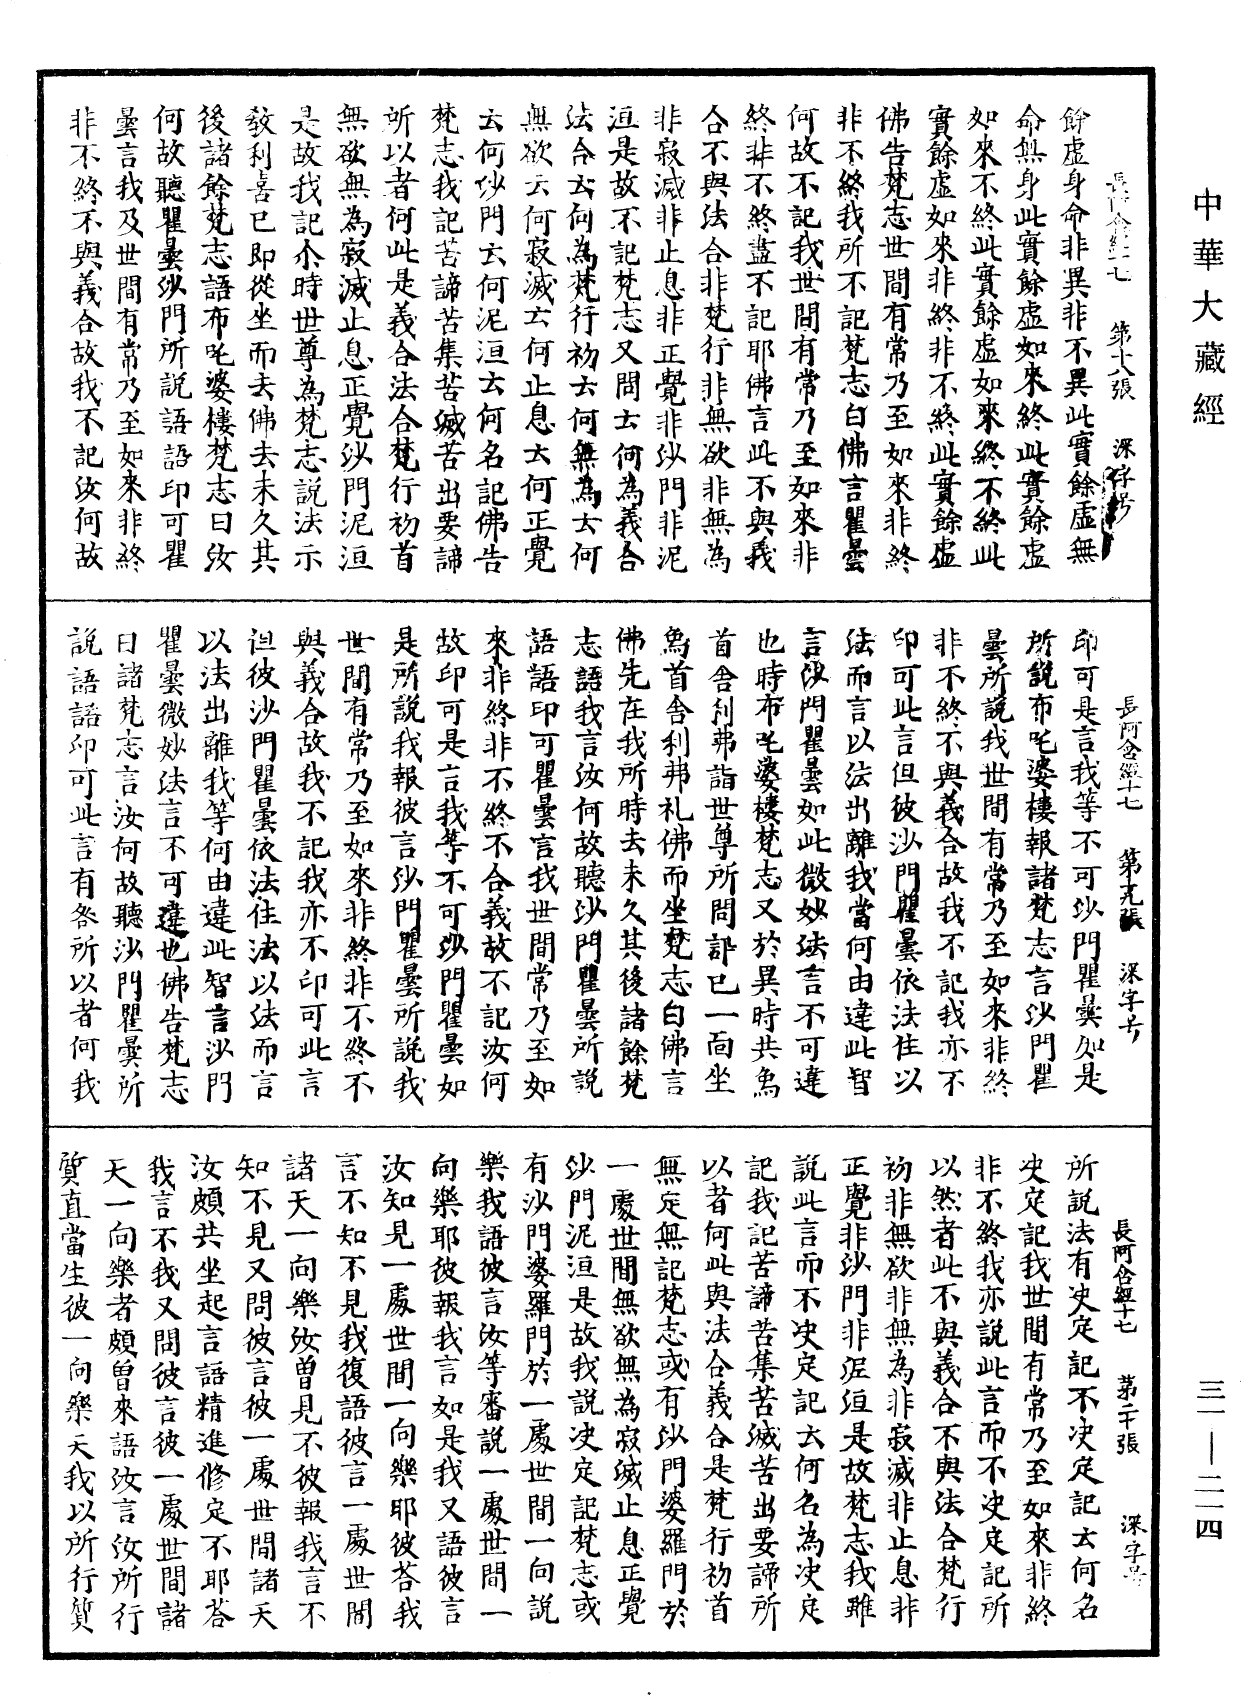 中華大藏經
三一—二一四
長阿含經十七　第十八張　深字号
餘虛身命非異非不異此實餘虛無
命無身此實餘虛如來終此實餘虛
如來不終此實餘虛如來終不終此
實餘虛如來非終非不終此實餘虛
佛告梵志世間有常乃至如來非終
非不終我所不記梵志白佛言瞿曇
何故不記我世間有常乃至如來非
終非不終盡不記耶佛言此不與義
合不與法合非梵行非無欲非無為
非寂滅非止息非正覺非沙門非泥
洹是故不記梵志又問云何為義合
法合云何為梵行初云何無為云何
無欲云何寂滅云何止息云何正覺
云何沙門云何泥洹云何名記佛告
梵志我記苦諦苦集苦滅苦出要諦
所以者何此是義合法合梵行初首
無欲無為寂滅止息正覺沙門泥洹
是故我記尒時世尊為梵志說法示
教利喜已即從坐而去佛去未久其
後諸餘梵志語布吒婆樓梵志曰汝
何故聽瞿曇沙門所說語語印可瞿
曇言我及世間有常乃至如來非終
非不終不與義合故我不記汝何故
長阿含經十七　第十九張　深字号
印可是言我等不可沙門瞿曇如是
所說布吒婆樓報諸梵志言沙門瞿
曇所說我世間有常乃至如來非終
非不終不與義合故我不記我亦不
印可此言但彼沙門瞿曇依法住以
法而言以法出離我當何由違此智
言沙門瞿曇如此微妙法言不可違
也時布吒婆樓梵志又於異時共為
首舍利弗詣世尊所問訊已一面坐
為首舍利弗礼佛而坐梵志白佛言
佛先在我所時去未久其後諸餘梵
志語我言汝何故聽沙門瞿曇所說
語語印可瞿曇言我世間常乃至如
來非終非不終不合義故不記汝何
故印可是言我等不可沙門瞿曇如
是所說我報彼言沙門瞿曇所說我
世間有常乃至如來非終非不終不
與義合故我不記我亦不印可此言
但彼沙門瞿曇依法住法以法而言
以法出離我等何由違此智言沙門
瞿曇微妙法言不可違也佛告梵志
曰諸梵志言汝何故聽沙門瞿曇所
說語語印可此言有咎所以者何我
長阿含經十七　第二十張　深字号
所說法有決定記不決定記云何名
決定記我世間有常乃至如來非終
非不終我亦說此言而不決定記所
以然者此不與義合不與法合梵行
初非無欲非無為非寂滅非止息非
正覺非沙門非泥洹是故梵志我雖
說此言而不決定記云何名為決定
記我記苦諦苦集苦滅苦出要諦所
以者何此與法合義合是梵行初首
無欲無為寂滅止息正覺
沙門泥洹是故我說決定記梵志或
有沙門婆羅門於一處世間一向說
樂我語彼言汝等審說一處世間一
向樂耶彼報我言如是我又語彼言
汝知見一處世間一向樂耶彼荅我
言不知不見我復語彼言一處世間
諸天一向樂汝曾見不彼報我言不
知不見又問彼言彼一處世間諸天
汝頗共坐起言語精進修定不耶荅
我言不我又問彼言彼一處世間諸
天一向樂者頗曾來語汝言汝所行
質直當生彼一向樂天我以所行質